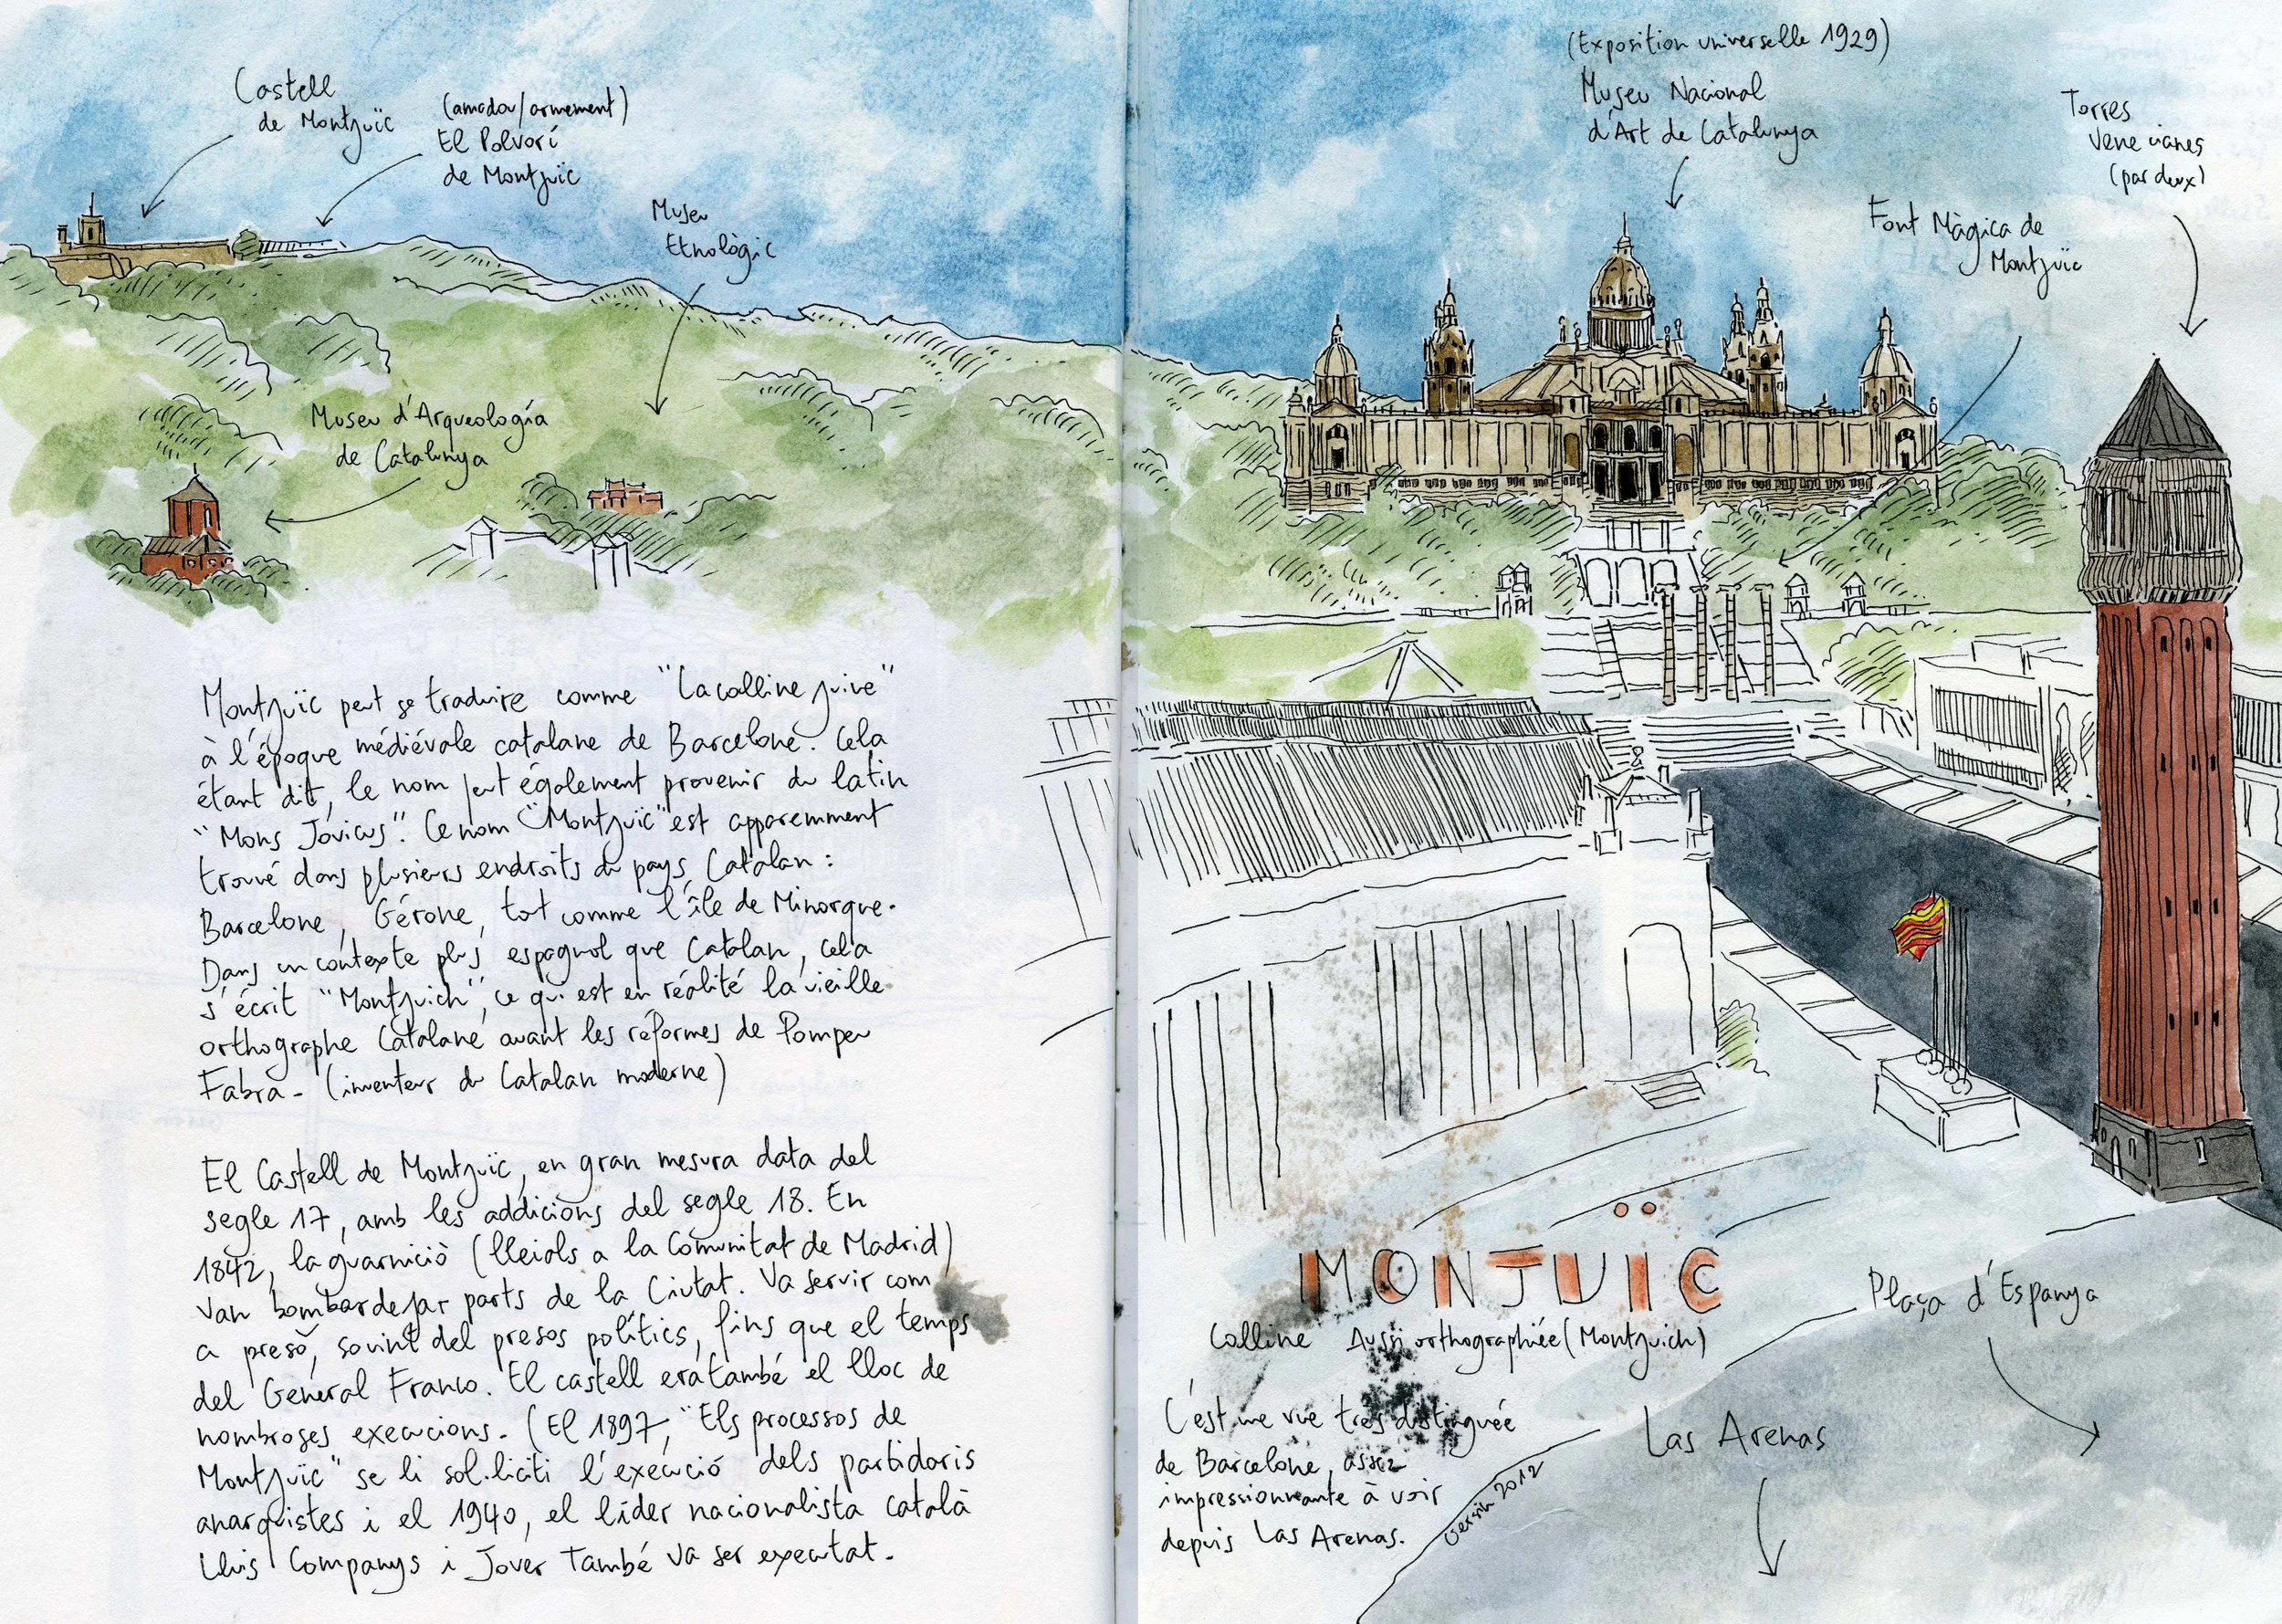 Castell
de Montjuïc
(amadou/armement)
El Polvorí
de Montjuïc
Museu
Etnològic
Museu d'Arqueología
de Catalunya
Montjuïc peut se traduire comme "La colline juive"
à l'époque médiévale catalane de Barcelone. Cela
étant dit, le nom peut également provenir du latin
"Mons Jovicus". Ce nom "Montjuïc" est apparemment
trouvé dans plusieurs endroits du pays Catalan :
Barcelone, Gérone, tot comme l'île de Minorque.
Dans un contexte plus espagnol que Catalan, cela
s'écrit "Montjuich", ce qui est en réalité la vieille
orthographe Catalane avant les réformes de Pompeu
Fabra - (inventeur du Catalan moderne)
El Castell de Montjuïc, en gran mesura data del
segle 17, amb les addicions del segle 18. En
1842, la guarnició (lleials a la Comunitat de Madrid)
van bombardejar parts de la Ciutat. Va servir com
a presò, sovint del presos polítics, fins que el temps
del General Franco. El castell era també el lloc de
nombroses execucions. (El 1897, "Els processos de
Montjuïc" se li sol·liciti l'execució dels partidaris
anarquistes i el 1940, el líder nacionalista català
Lluis Companys i Jover També va ser executat.
(Exposition universelle 1929)
Museu Nacional
d'Art de Catalunya
Torres
Venecianes
(par deux)
Font Màgica de
Montjuïc
MONJUÏC
Colline Aussi orthographiée (Montjuich)
C'est une vue très distinguée
de Barcelone, assez
impressionnante à voir
depuis Las Arenas.
Gersin 2012
Plaça d'Espanya
Las Arenas